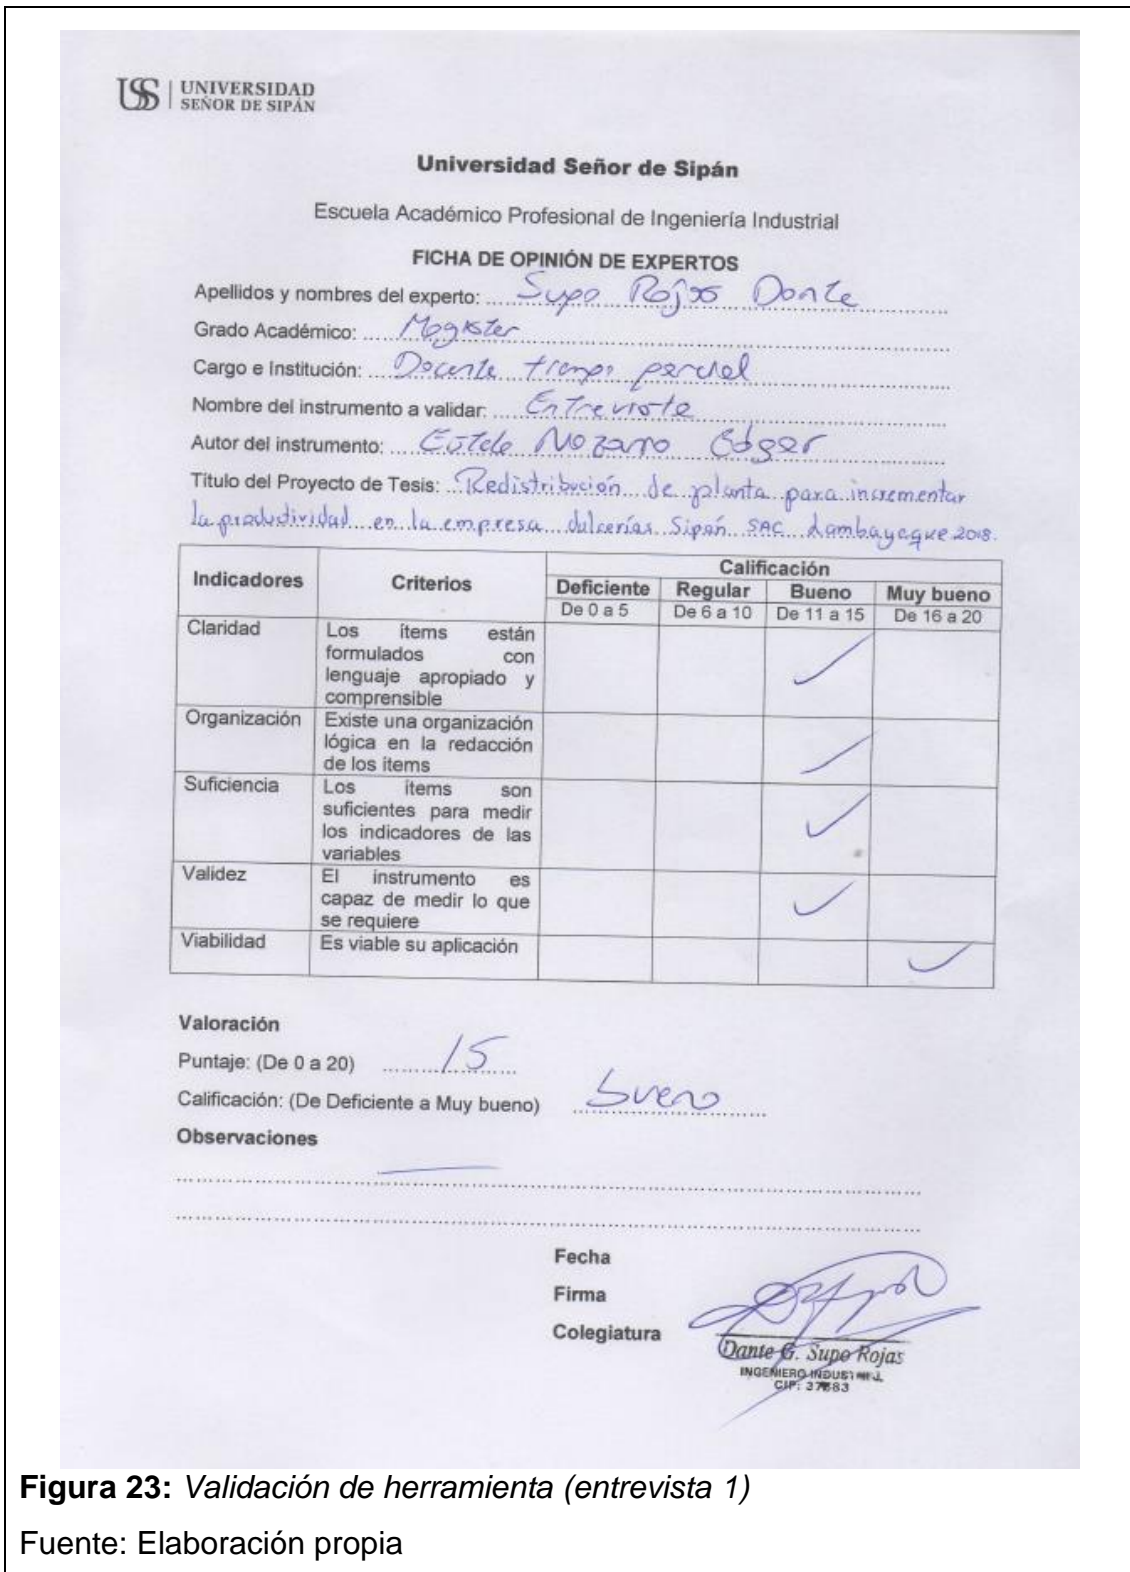 USS | UNIVERSIDAD
SEÑOR DE SIPÁN
Universidad Señor de Sipán
Escuela Académico Profesional de Ingeniería Industrial
FICHA DE OPINIÓN DE EXPERTOS
Apellidos y nombres del experto: Supo Rojas Dante
Grado Académico: Magister
Cargo e Institución: Docente tiempo parcial
Nombre del instrumento a validar: Entrevista
Autor del instrumento: Edger
Título del Proyecto de Tesis: Redistribución de planta para incrementar
la productividad en la empresa dulcerías Sipán SAC Lambayeque 2018.
Indicadores Criterios Calificación
Deficiente Regular Bueno Muy bueno
De 0 a 5 De 6 a 10 De 11 a 15 De 16 a 20
Claridad Los ítems están
formulados con
lenguaje apropiado y
comprensible
Organización Existe una organización
lógica en la redacción
de los ítems
Suficiencia Los ítems son
suficientes para medir
los indicadores de las
variables
Validez El instrumento es
capaz de medir lo que
se requiere
Viabilidad Es viable su aplicación
Valoración
Puntaje: (De 0 a 20) 15
Calificación: (De Deficiente a Muy bueno) bueno
Observaciones
Fecha
Firma
Colegiatura
Dante G. Supo Rojas
INGENIERO INDUSTRIAL
CIP:
Figura 23: Validación de herramienta (entrevista 1)
Fuente: Elaboración propia